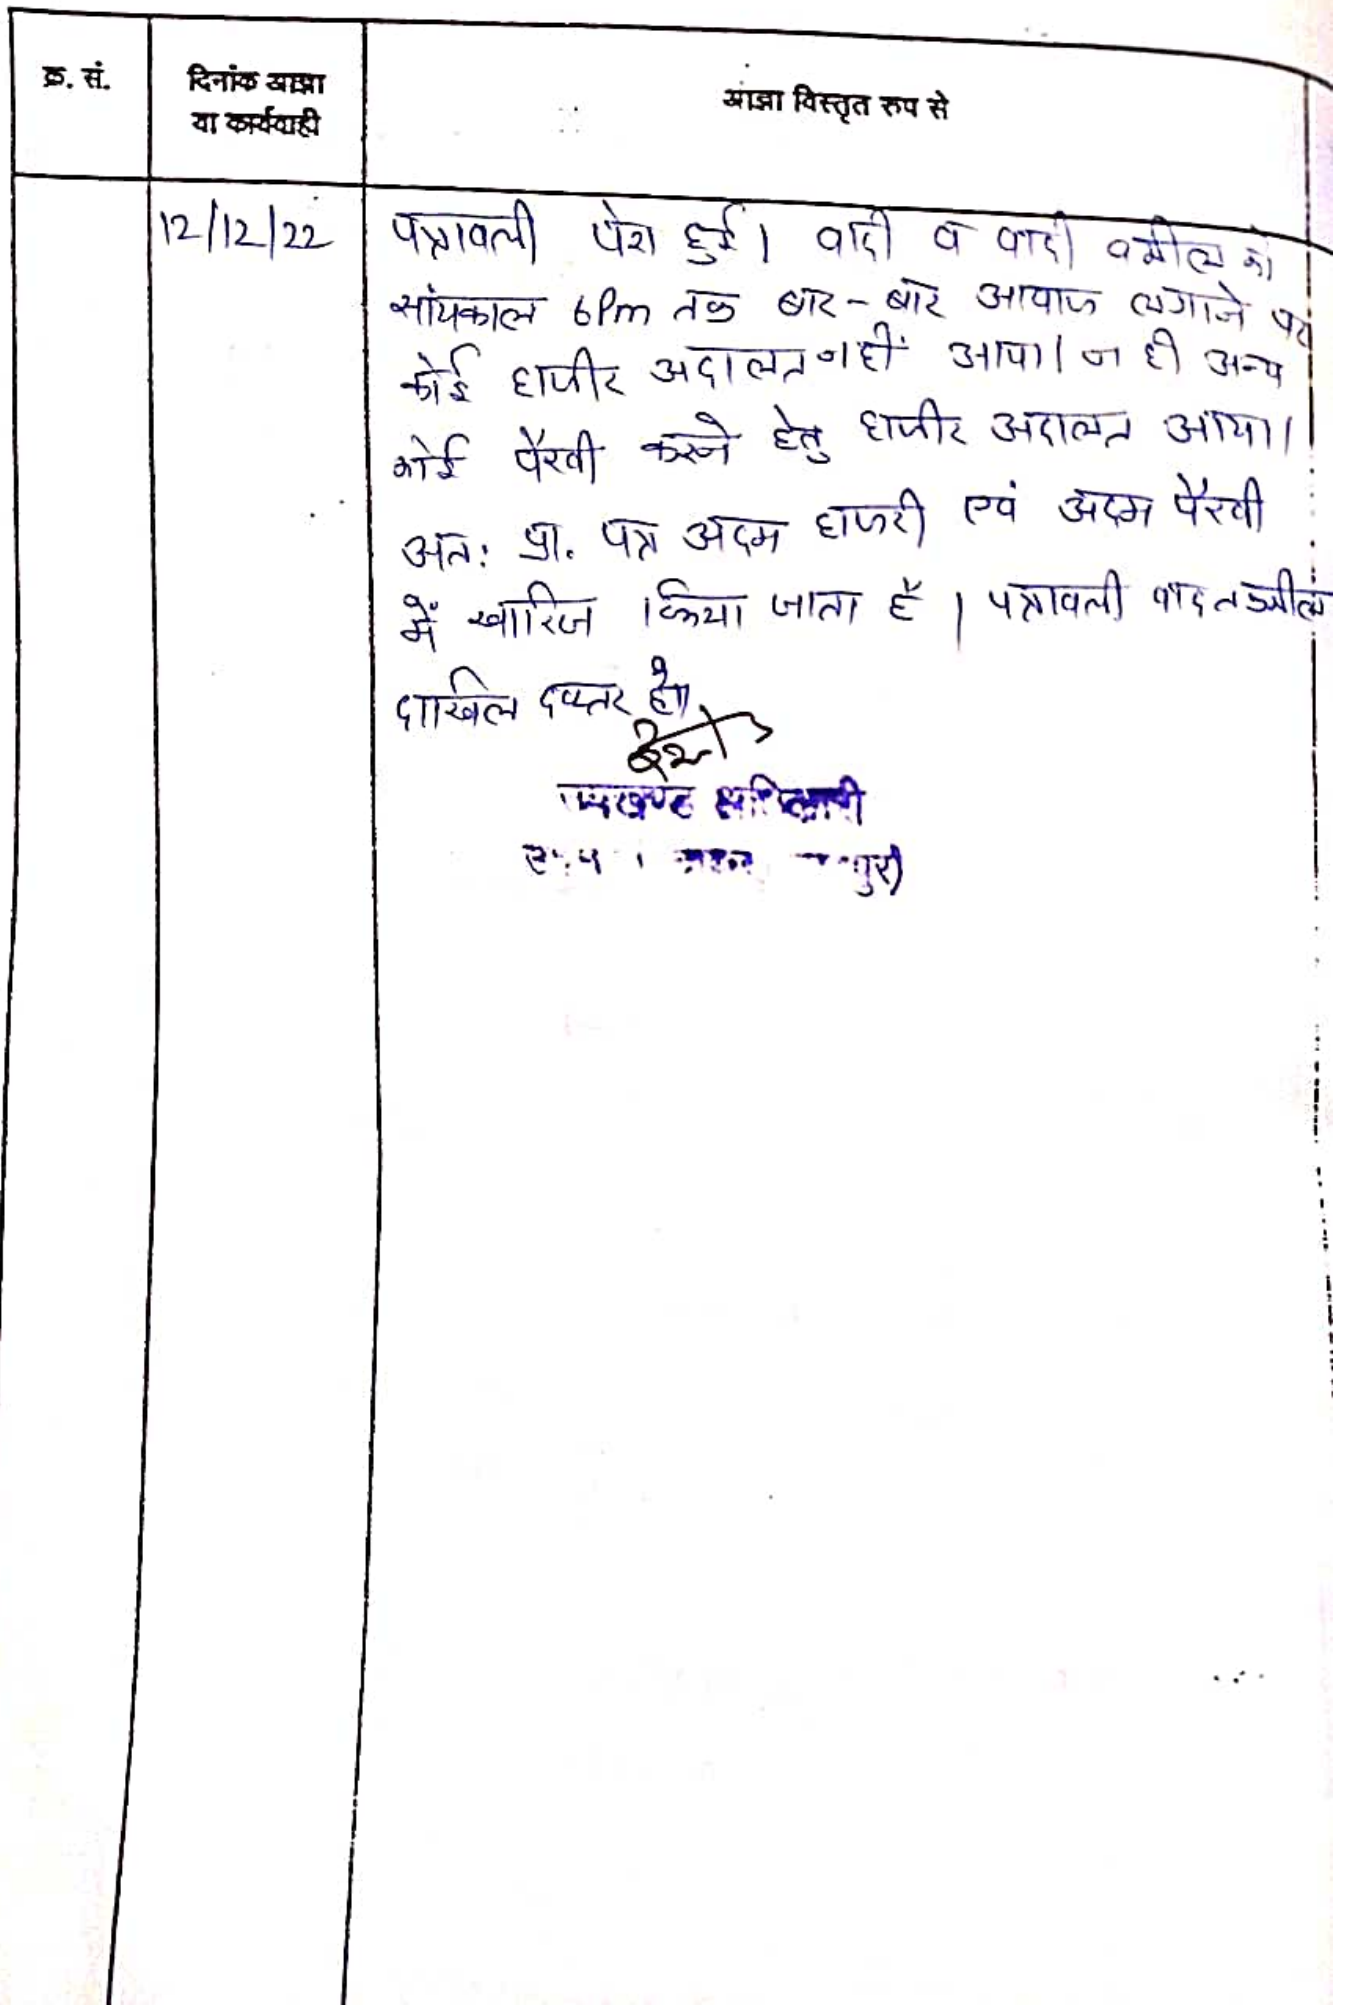 क्र. सं.
दिनांक आज्ञा
या कार्यवाही
आज्ञा विस्तृत रुप से
12/12/22
पत्रावली पेश हुई। वादी व वादी वकील को
सांयकाल 6Pm तक बार-बार आवाज लगाने पर
कोई हाजीर अदालत नहीं आया। न ही अन्य
कोई पैरवी करने हेतु हाजीर अदालत आया।
अतः प्रा. पत्र अदम हाजरी एवं अदम पैरवी
में खारिज किया जाता है। पत्रावली बाद तकमील
दाखिल दफ्तर हो।
उपखण्ड अधिकारी